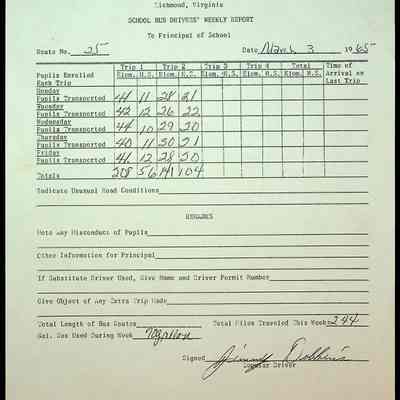 Richmond, Virginia
SCHOOL BUS DRIVERS' WEEKLY REPORT
To Principal of School
Route No. 25 Date March 3 1965
Trip 1 Trip 2 Trip 3 Trip 4 Total Time of
Pupils Enrolled Elem. H.S. Elem. H.S. Elem. H.S. Elem. H.S. Elem. H.S. Arrival on
Each Trip Last Trip
Monday
Pupils Transported 41 11 28 21
Tuesday
Pupils Transported 42 12 26 22
Wednesday
Pupils Transported 44 10 29 20
Thursday
Pupils Transported 40 11 30 21
Friday
Pupils Transported 41 12 28 20
Totals 208 56 141 104
Indicate Unusual Road Conditions
REMARKS
Note Any Misconduct of Pupils
Other Information for Principal
If Substitute Driver Used, Give Name and Driver Permit Number
Give Object of Any Extra Trip Made
Total Length of Bus Routes Total Miles Traveled This Week 244
Gal. Gas Used During Week
Signed Jimmy Dobbins
Regular Driver